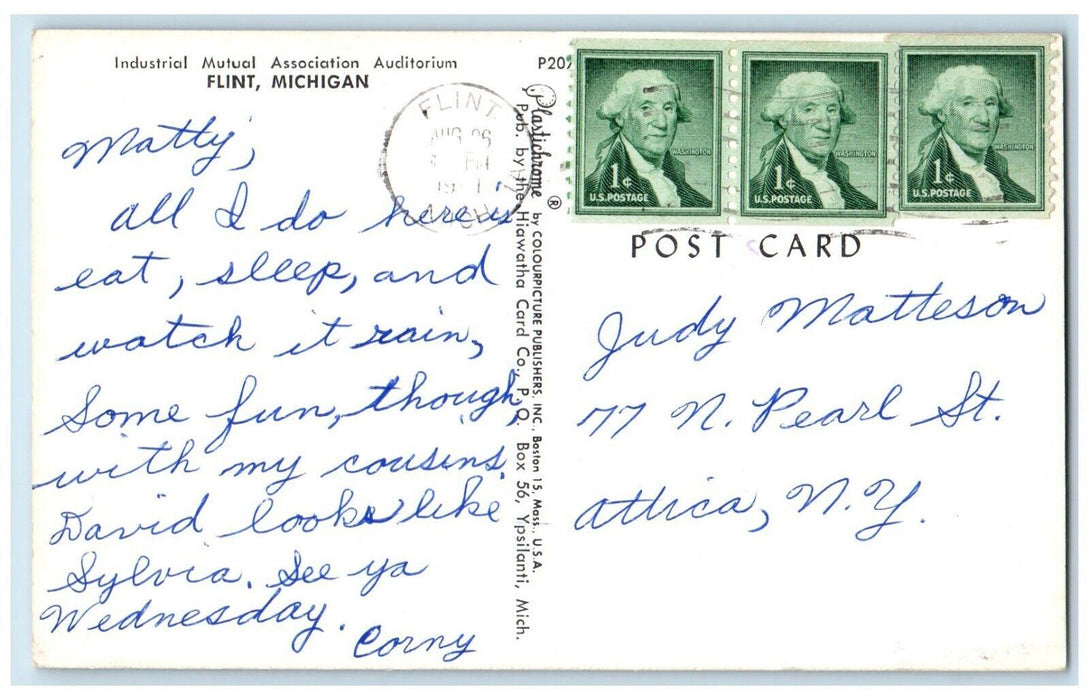 Industrial Mutual Association Auditorium
FLINT, MICHIGAN
Matty,
all I do here is
eat, sleep, and
watch it rain,
Some fun, though,
with my cousins.
David looks like
Sylvia. See ya
Wednesday.
Corny
P202
FLINT
AUG 26
PM
Plastichrome ® by COLOURPICTURE PUBLISHERS, INC., Boston 15, Mass., U.S.A.
Pub. by the Hiawatha Card Co., P. O. Box 56, Ypsilanti, Mich.
WASHINGTON
1¢
U.S. POSTAGE
WASHINGTON
1¢
U.S. POSTAGE
WASHINGTON
1¢
U.S. POSTAGE
POST CARD
Judy Matteson
77 N. Pearl St.
Attica, N.Y.